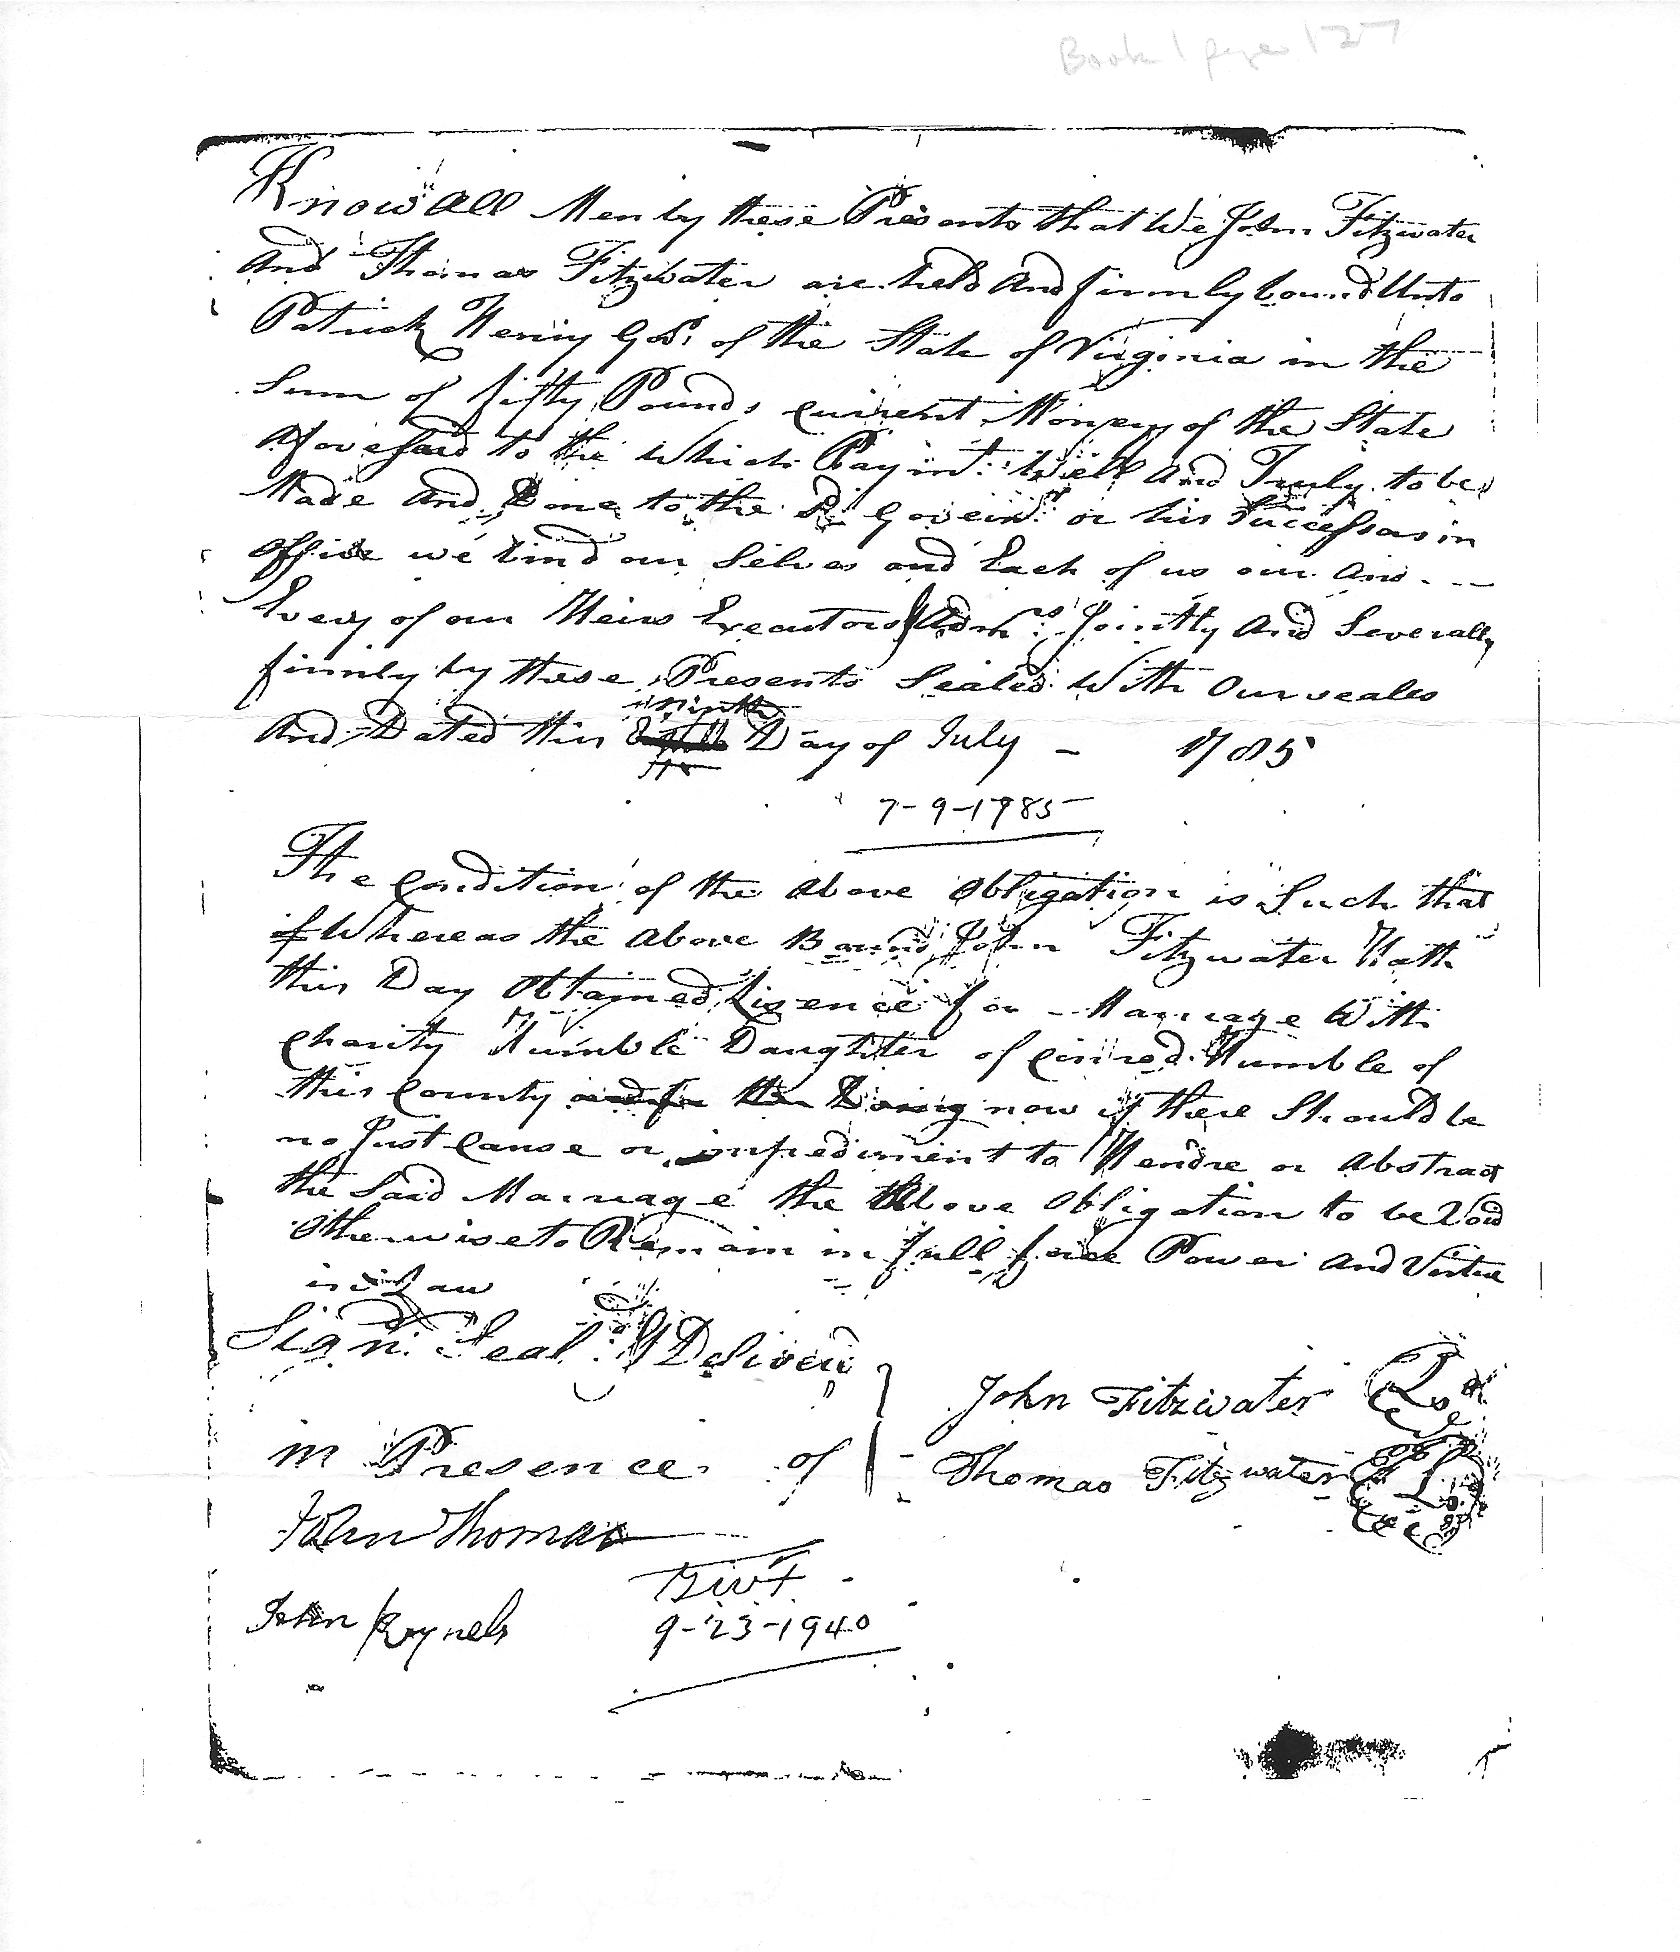 Book 1 page 127
Know All Men by these Presents that We John Fitzwater
And Thomas Fitzwater are held And firmly bound Unto
Patrick Henry Govr. of the State of Virginia in the
Sum of fifty Pounds current Money of the State
Aforesaid to the Which Paymt. Well And Truly to be
Made And Done to the Sd. Govern. or his Successors in
Office we bind our Selves and Each of us our And
Every of our Heirs Executors & Admrs. Jointly And Severally
firmly by these Presents Sealed With Our seales
ninth
And Dated this Day of July - 1785
7-9-1785
The Condition of the above Obligation is Such that
if Whereas the above Bound John Fitzwater Hath
this Day Obtained Lisence for Marriage With
Charity Humble Daughter of Conrad Humble of
this County and for the now if there Should be
no Just Cause or impediment to Hendre or Abstract
the Said Marriage the Above Obligation to be Void
Otherwise to Remain in full force Power And Virtue
in Law
Signd. Seald. & Deliverd
in Presence of
John Fitzwater
Thomas Fitzwater
John Thomas
John Rynels
9-23-1940